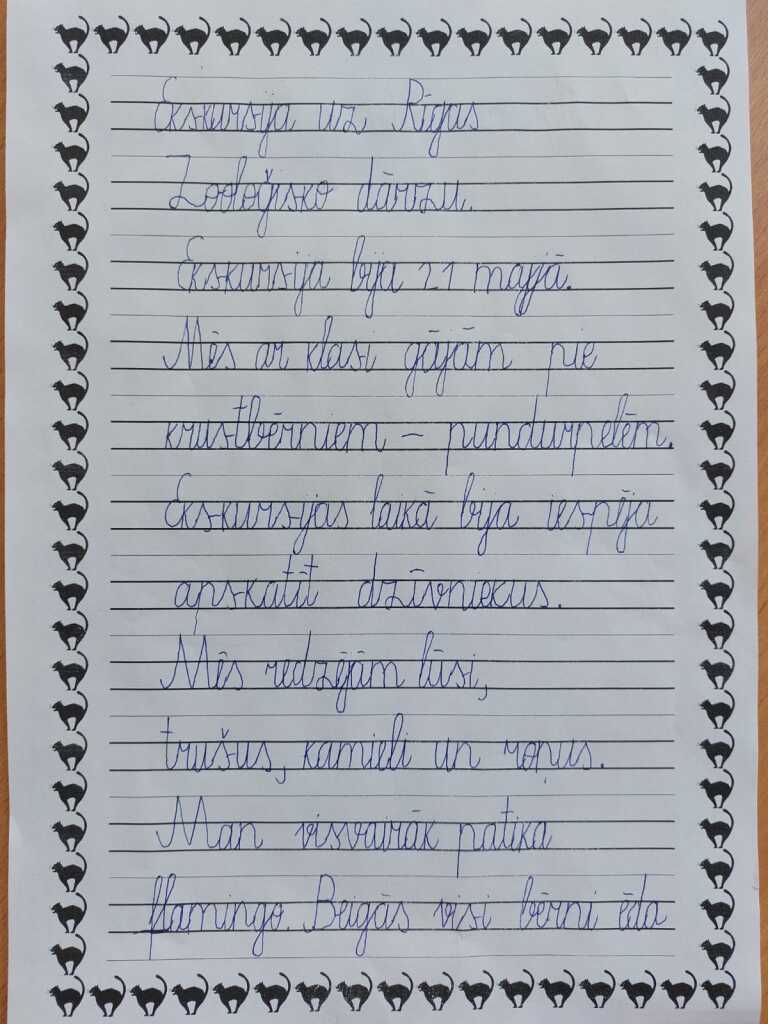 Ekskursija uz Rīgas
Zooloģisko dārzu.
Ekskursija bija 21 majjā.
Mēs ar klasi gājām pie
krustbērniem – pundurpelēm.
Ekskursijas laikā bija iespēja
apskatīt dzīvniekus.
Mēs redzējām lūsi,
trušus, kamieli un roņus.
Man visvairāk patika
flamingo. Beigās visi bērni ēda